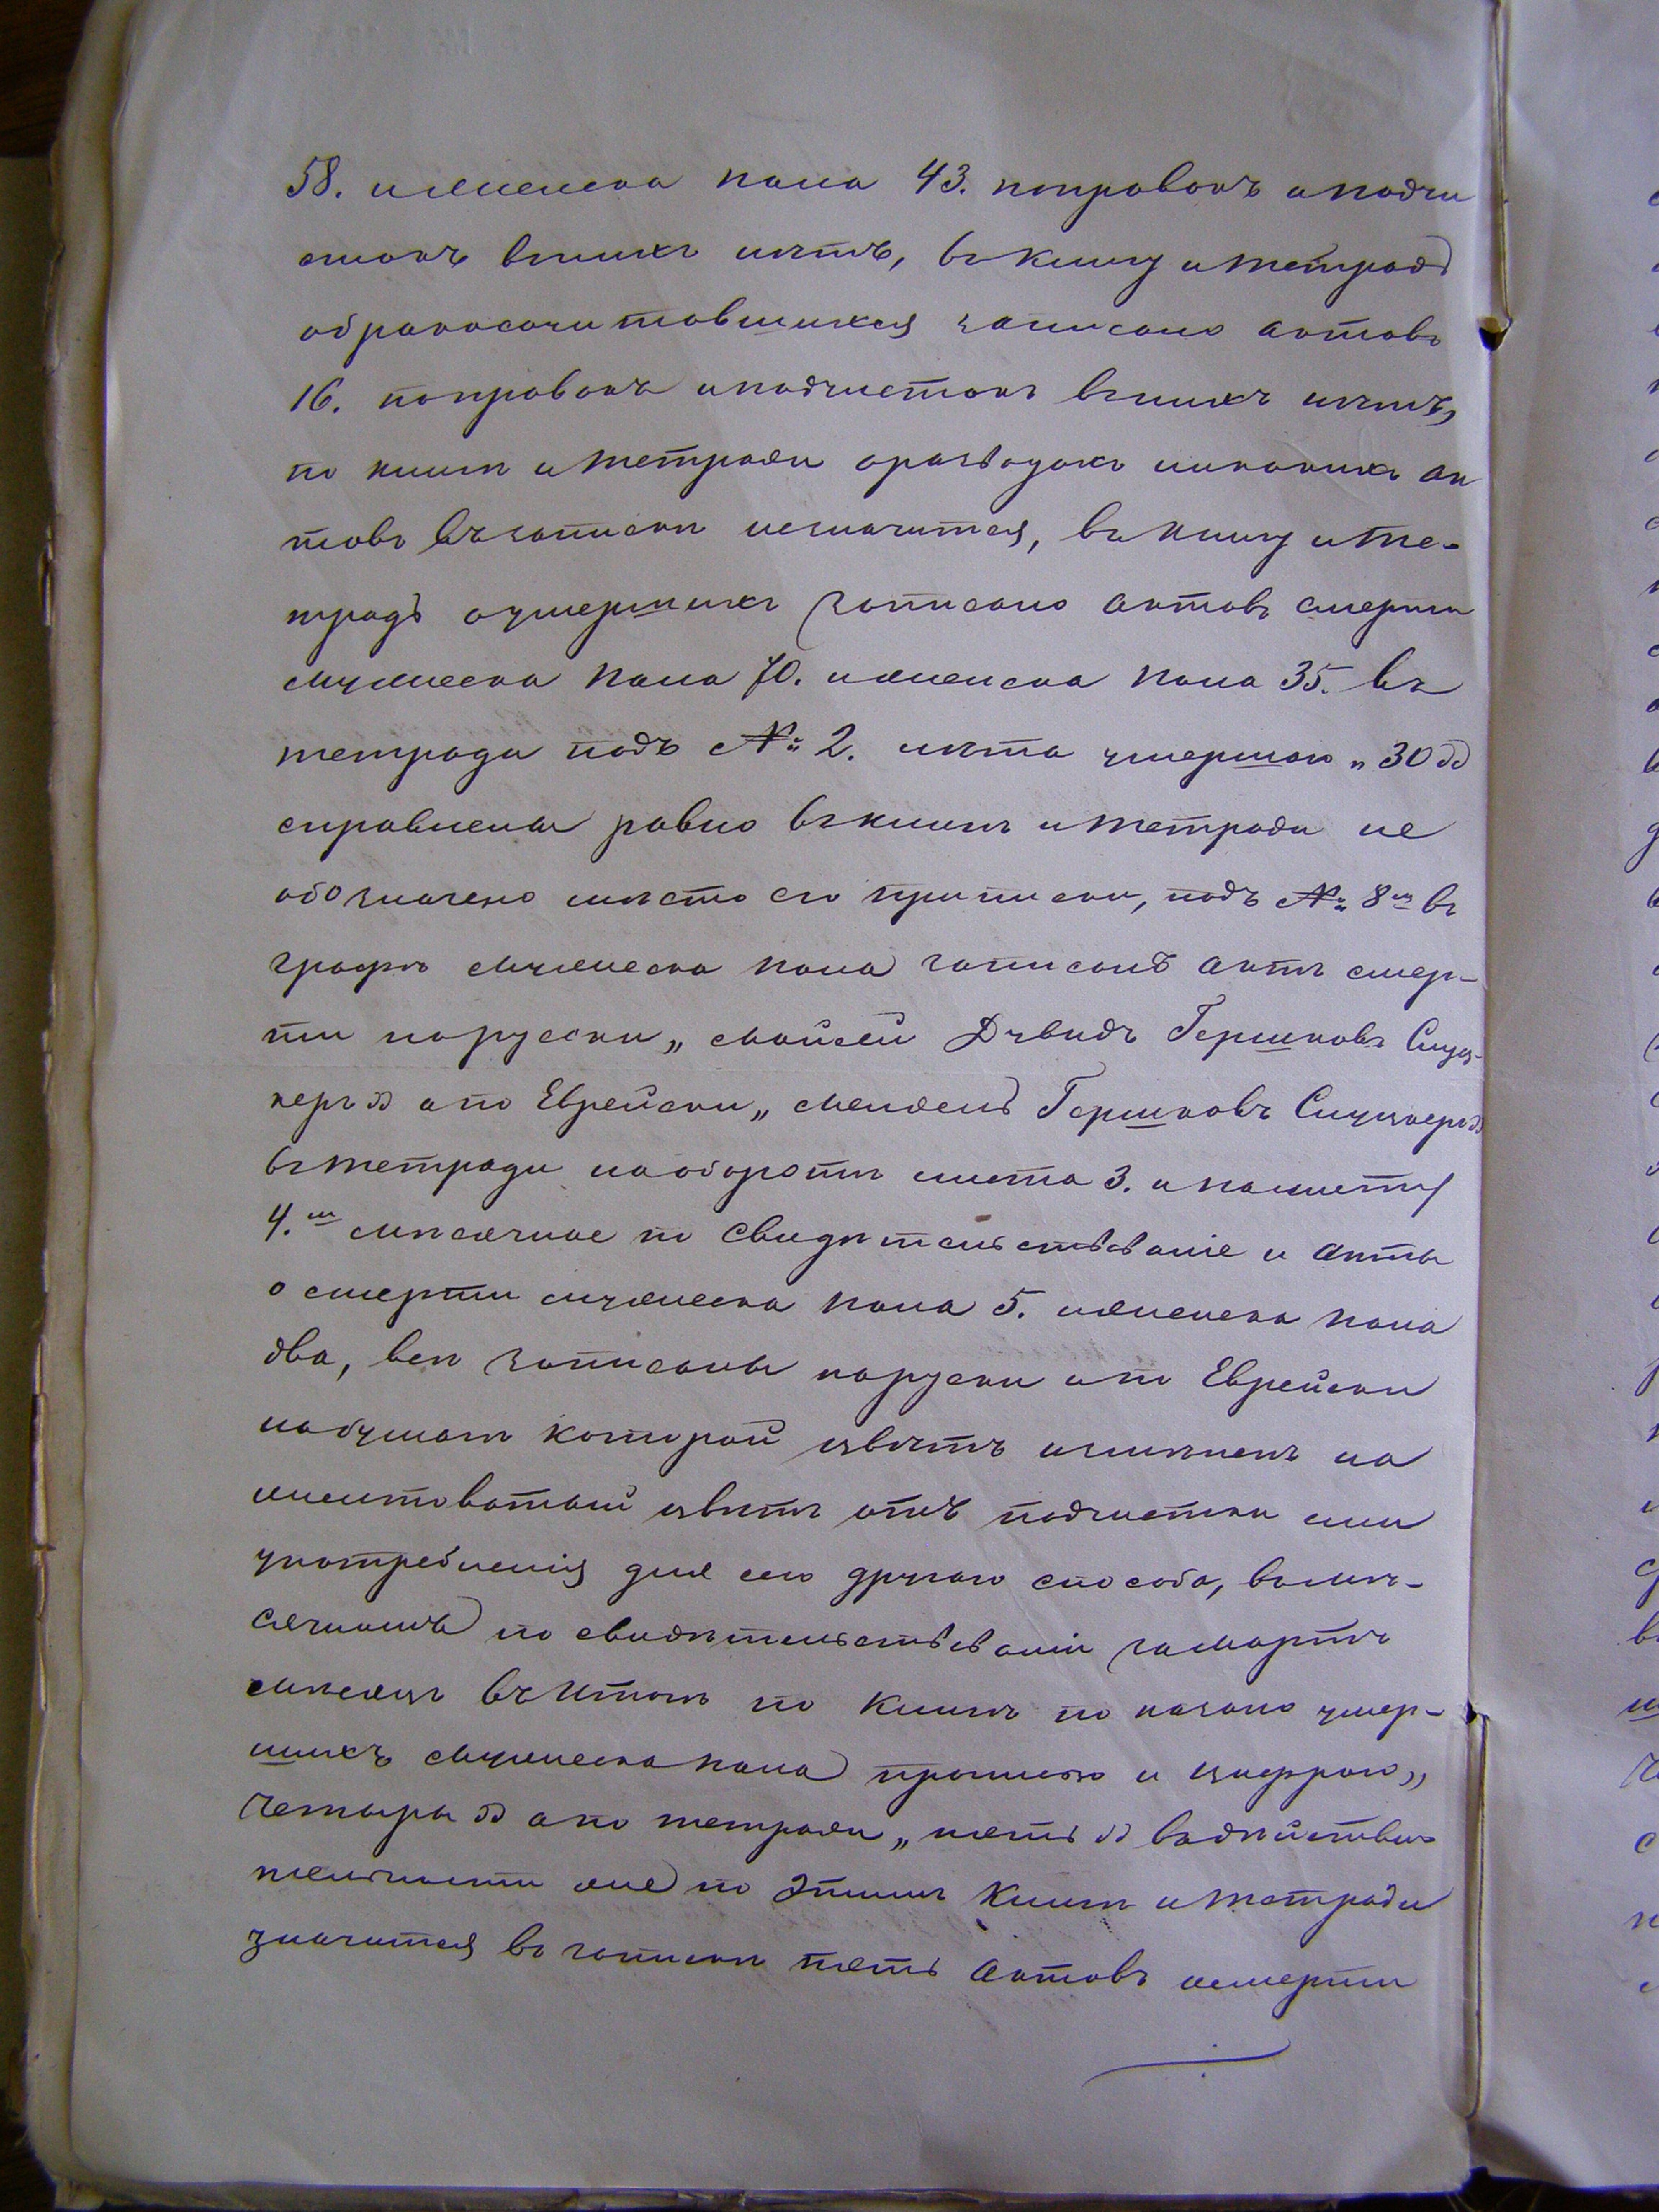 58. и женска пола 43. поправокъ и подчи
стокъ въ нихъ нѣтъ, въ книгу и тетрадь
о бракосочитовшихся записано актовъ
16. поправокъ и подчистокъ въ нихъ нѣтъ,
по книгѣ и тетради о разводахъ никакихъ ак
товъ въ записки незначится, въ книгу и те-
традь о умершихъ записано актовъ смерти
мужеска пола 70. и женска пола 35. въ
тетради подъ № 2. лѣта умершаго „30"
справлены равно въ книгѣ и тетради не
обозначено мѣсто его приписки, подъ № 8м въ
графѣ мужеска пола записанъ актъ смер-
ти по русски „Мойсей Дувидъ Гершковъ Слуц-
керъ" а по Еврейски „Мендель Гершковъ Слуцкеръ"
въ тетради на оборотѣ листа 3. и на листу
4.м мѣсячное по свидѣтельствованіе и акты
о смерти мужеска пола 5. и женска пола
два, всѣ записаны по руски и по Еврейски
на бумагѣ которой цвѣтъ измѣненъ на
желтоватый цвѣтъ отъ подчистки или
употребленія для сего другаго способа, въ мѣ-
сячномъ по свидѣтельствованіи за Мартъ
мѣсяцъ въ Итогѣ по Книгѣ по казано умер-
шихъ мужеска пола прописью и цыфрою „
Четыры" а по тетради „пять" въ дѣйстви
тельности же по этимъ Книгѣ и тетради
значится въ записки пять актовъ о смерти